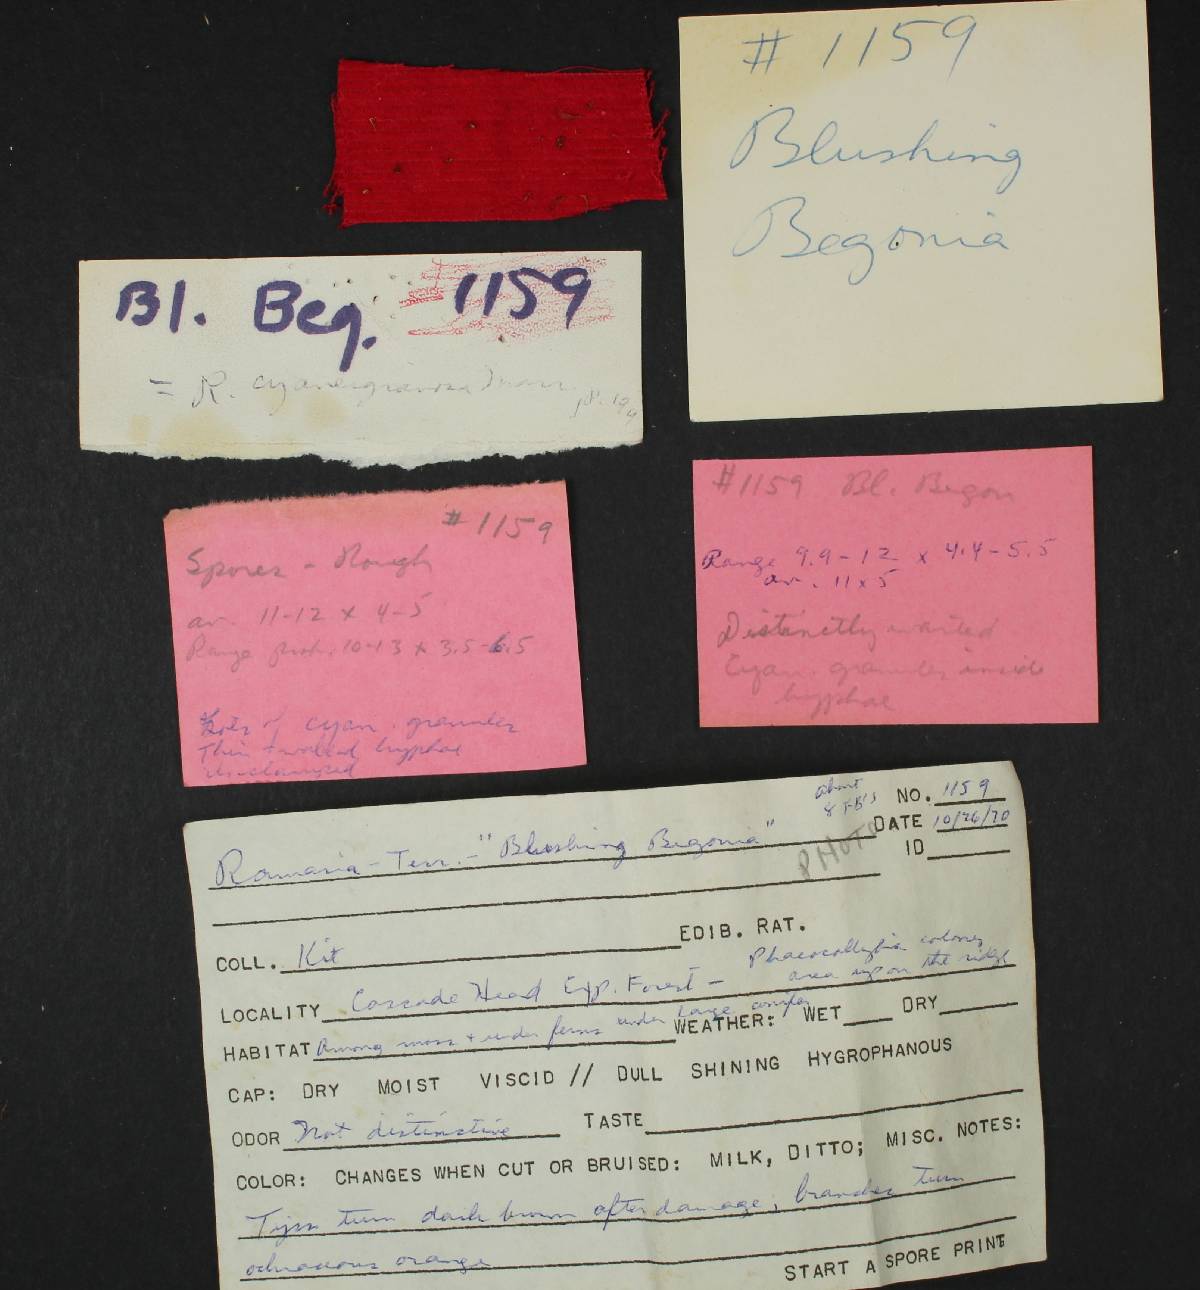 # 1159
Blushing
Begonia
Bl. Beg. 1159
= R. cyaneigranosa Marr
# 1159
Spores - Rough
av. 11-12 x 4-5
Range prob. 10-13 x 3.5-6.5
Lots of cyan. granules
Thin walled hyphae
unclamped
#1159 Bl. Begon
Range 9.9-12 x 4.4-5.5
av. 11 x 5
Distinctly warted
Cyan. granules inside
hyphae
about
8 FB's
NO. 1159
Ramaria - Terr. - "Blushing Begonia"
PHOTO
DATE 10/26/70
ID
COLL. Kit
EDIB. RAT.
LOCALITY Cascade Head Exp. Forest - Phaeocollybia colonies
area up on the ridge
HABITAT Among moss + under ferns under large conifer
WEATHER: WET DRY
CAP: DRY MOIST VISCID // DULL SHINING HYGROPHANOUS
ODOR Not distinctive TASTE
COLOR: CHANGES WHEN CUT OR BRUISED: MILK, DITTO; MISC. NOTES:
Tips turn dark brown after damage; branches turn
ochraceous orange
START A SPORE PRINT